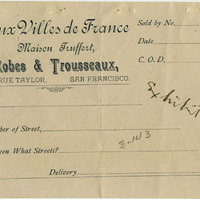 ux Villes de France
Sold by No.
Maison Truffert,
Date
Robes & Trousseaux,
C. O. D.
RUE TAYLOR, SAN FRANCISCO.
Exhibit
ber of Street,
3-143
een What Streets?
Delivery